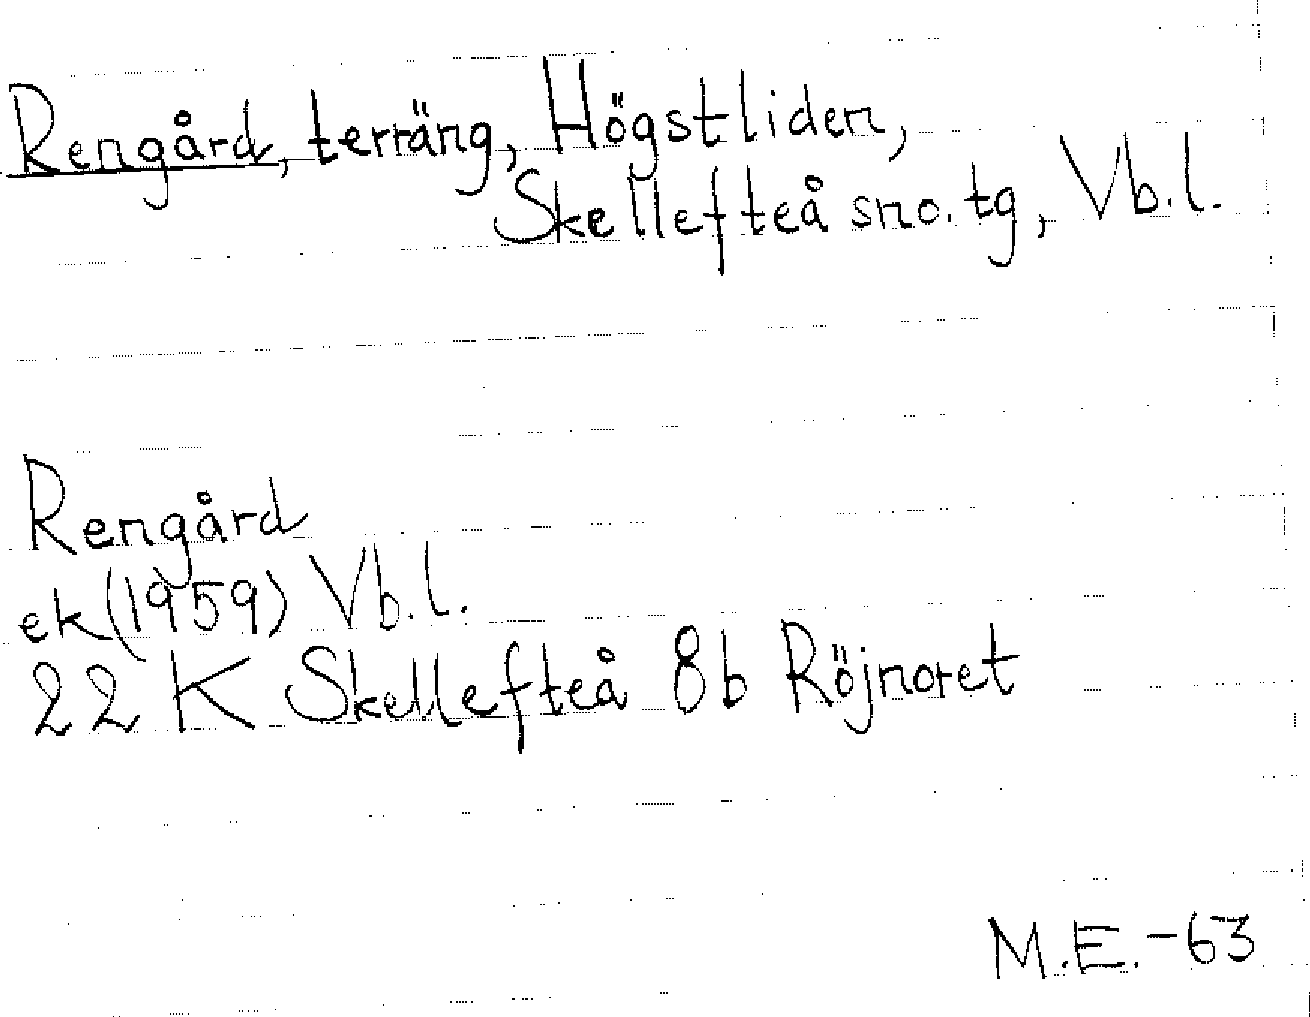 Rengård, terräng, Högstliden,
Skellefteå sno. tg, Vb.l.
Rengård
ek (1959) Vb.l.
22 K Skellefteå 8b Röjnoret
M.E.-63